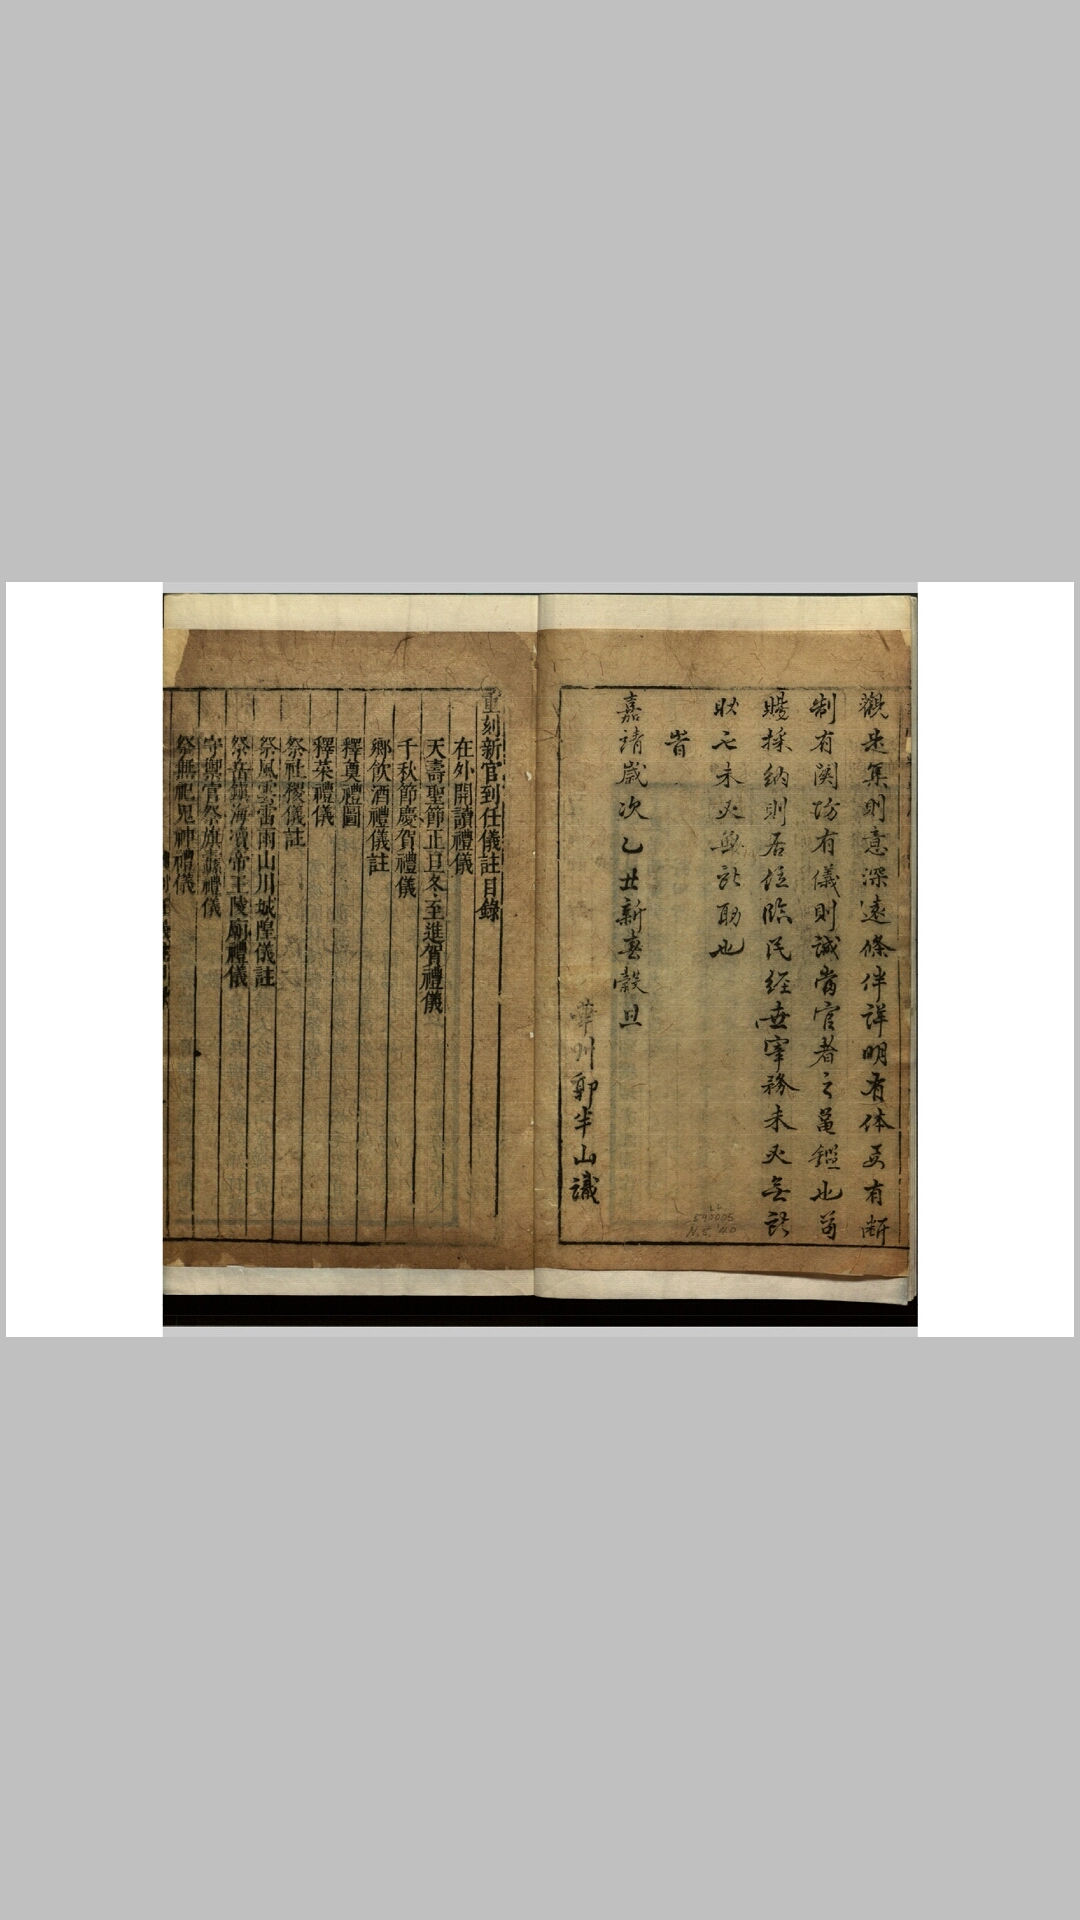 觀是集則意深遠條件詳明有体要有断
制有関防有儀則誠當官者之蓍鑑也苟
賜採納則居位臨民經世宰務未必無所
也
皆
嘉靖歲次乙丑新春穀旦
華州郭半山識
重刻新官到任儀註目錄
在外開讀禮儀
天壽聖節正旦冬至進賀禮儀
千秋節慶賀禮儀
鄉飲酒禮儀註
釋奠禮圖
釋菜禮儀
祭社稷儀註
祭風雲雷雨山川城隍儀註
祭岳鎮海瀆帝王陵廟禮儀
守禦官祭旗纛禮儀
祭無祀鬼神禮儀